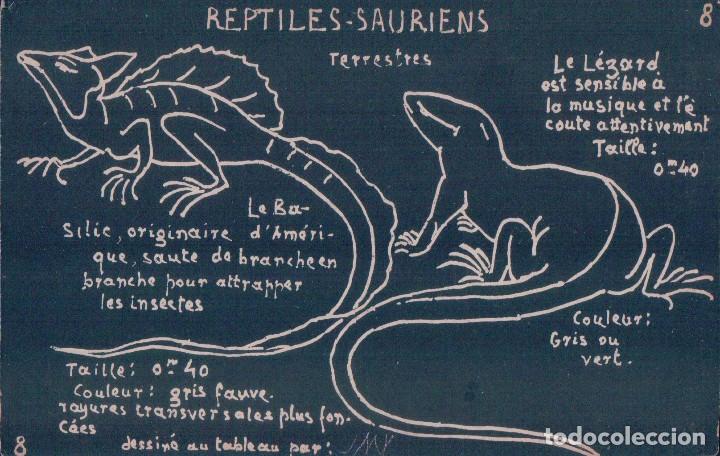 REPTILES-SAURIENS
8
Terrestres
Le Lézard
est sensible à
la musique et l'é
coute attentivement
Taille:
0m40
Le Ba-
silic, originaire d'Améri-
que, saute de branche en
branche pour attrapper
les insectes
Couleur:
Gris ou
vert.
Taille: 0m40
Couleur: gris fauve.
rayures transversales plus fon-
cées
dessiné au tableau par:
8
todocoleccion